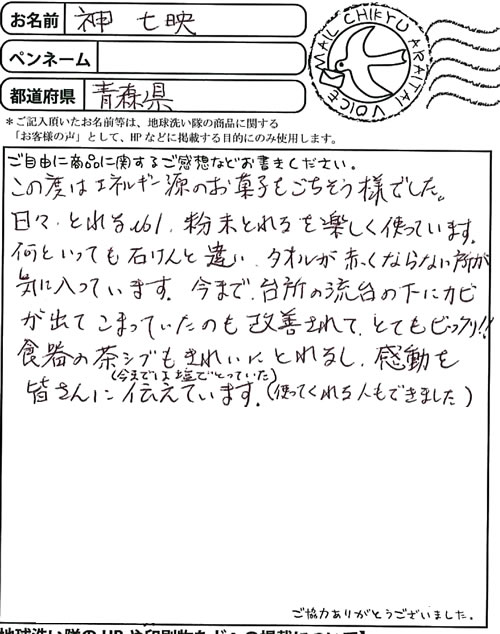 お名前 神 七映
ペンネーム
都道府県 青森県
MAIL CHIKYU ARAITAI VOICE
＊ご記入頂いたお名前等は、地球洗い隊の商品に関する
「お客様の声」として、HPなどに掲載する目的にのみ使用します。
ご自由に商品に関するご感想などお書きください。
この度はエネルギー源のお菓子もごちそう様でした。
日々、とれるNo1、粉末とれるを楽しく使っています。
何といっても石けんと違い、タオルが赤くならない所が
気に入っています。今まで、台所の流台の下にカビ
が出てこまっていたのも改善されて、とてもビックリ!!
食器の茶シブもきれいにとれるし、感動を
(今までは塩でとっていた)
皆さんに伝えています。(使ってくれる人もできました)
ご協力ありがとうございました。
地球洗い隊のHPや印刷物などへの掲載について】